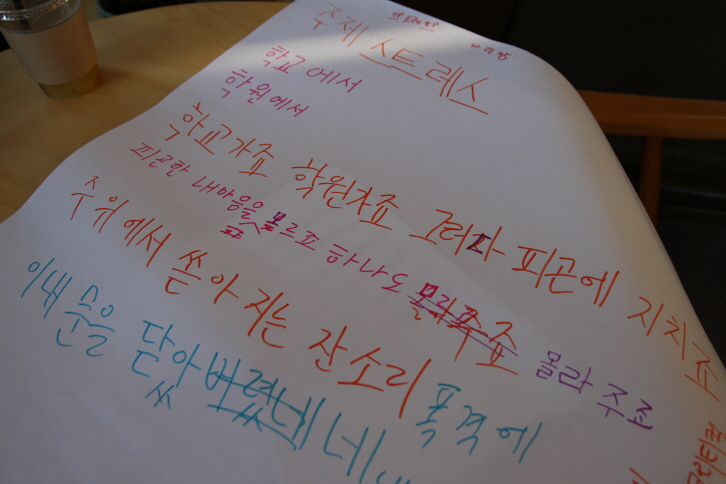 주제 스트레스
학교에서
학원에서
학교가죠 학원가죠 그러다 피곤에 지치죠
피곤한 내마음을 모르죠 하나도 몰라주죠
주위에서 쏟아지는 잔소리 폭격에
이내 문을 닫아 버렸네 네